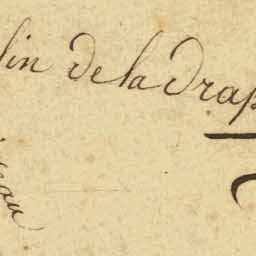 lin de la drap
eau